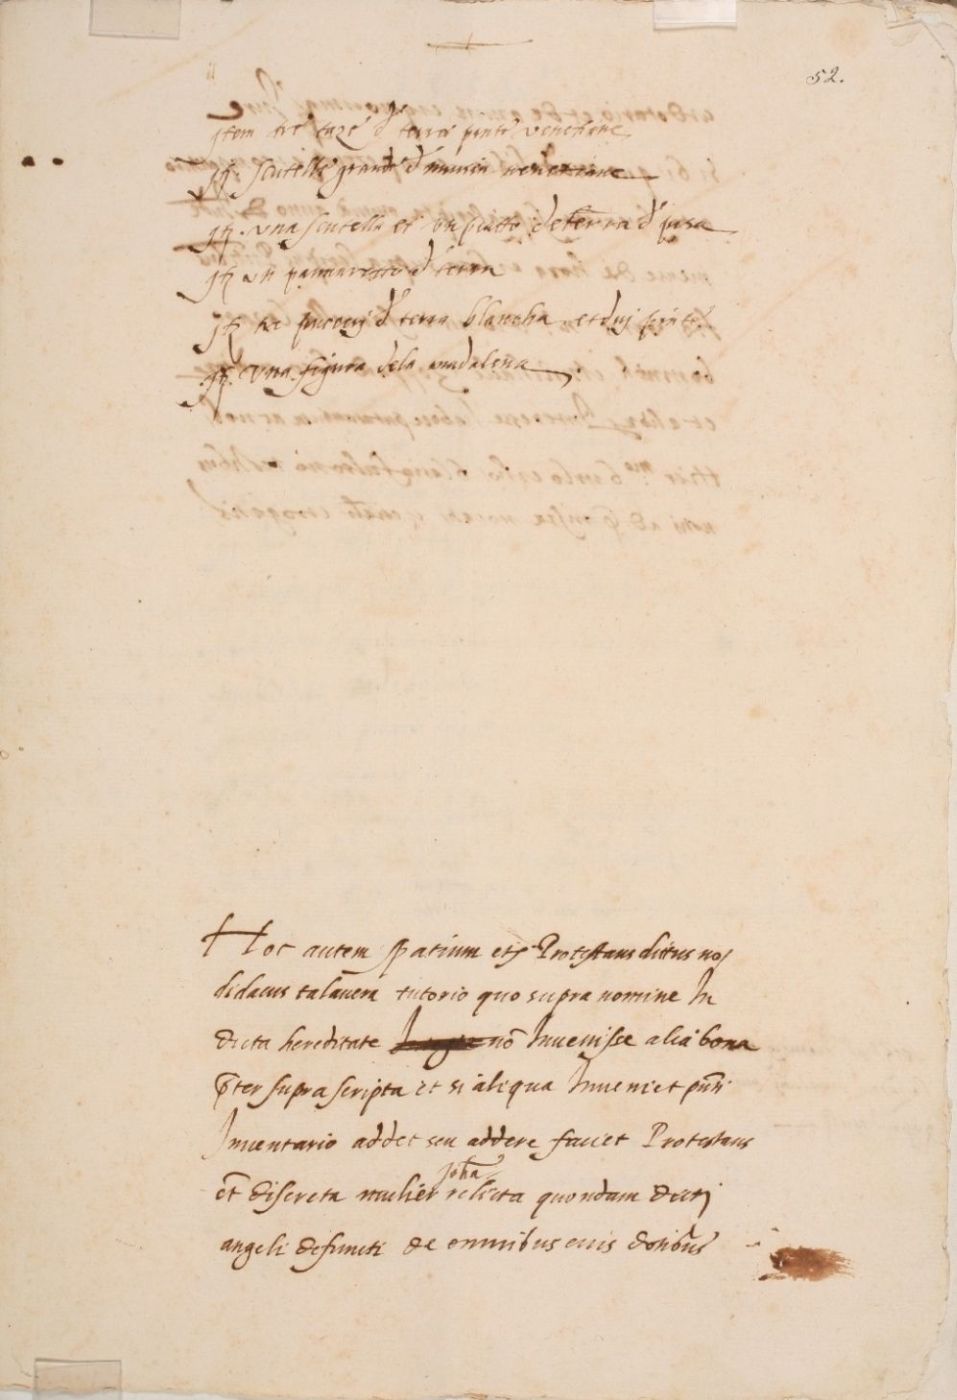 52.
jtem tre taze d terra pinte venetiane
jtt scutelle grande d
jtt una scutella et un piatto de terra d pisa
jtt un d terra
jtt tre d terra blancha et duj pinti
jtt una figura dela madalena
Hoc autem spatium etc Protestans dictus no:
didacus talavera tutorio quo supra nomine In
dicta hereditate nō Invenisse alia bona
p̄ter suprascripta et si aliqua Inveniet pn̄ti
Inventario addet seu addere faciet Protestans
et̄ discreta mulier joħa relicta quondam dicti
angeli defuncti de omnibus euis dotibus